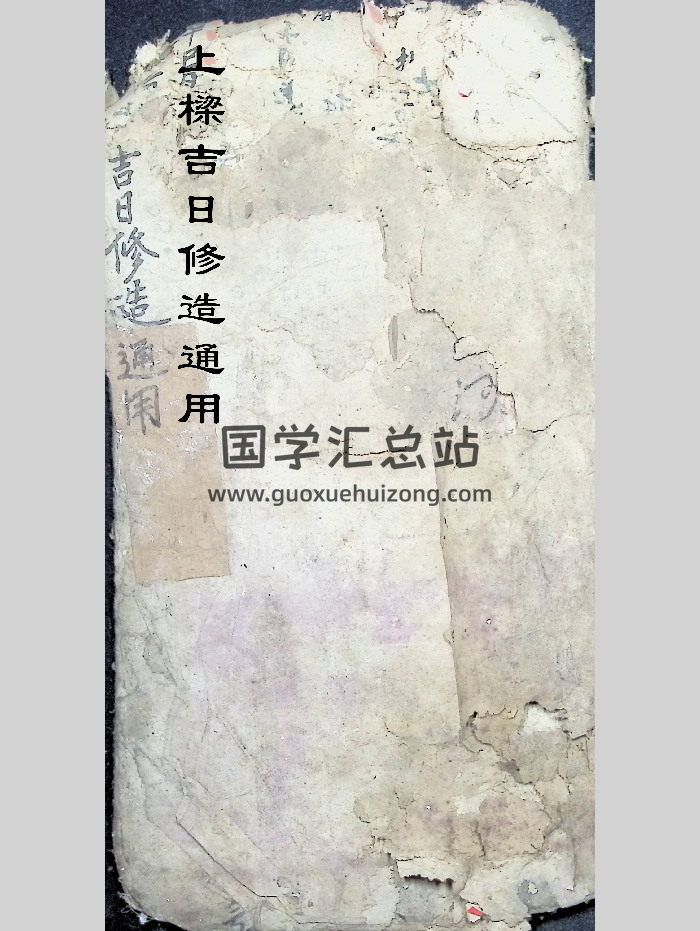 上樑吉日修造通用
吉日修造通用
国学汇总站
www.guoxuehuizong.com